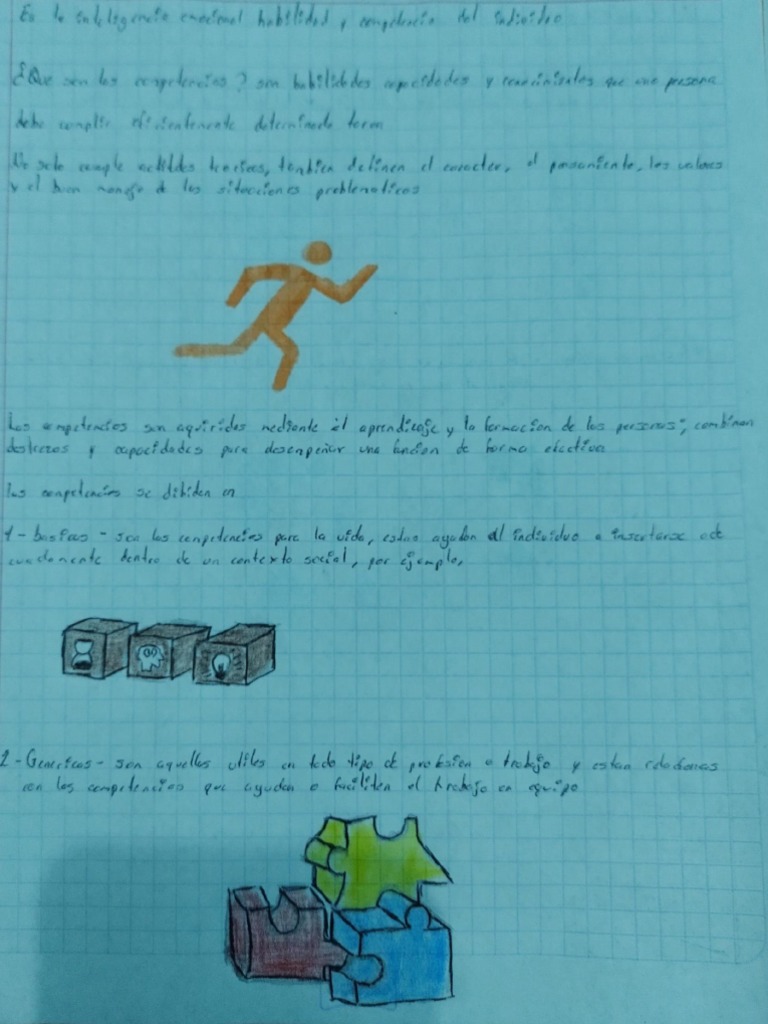 Es la inteligencia emocional habilidad y competencia del individuo
¿Que son las competencias? son habilidades capacidades y conocimientos que una persona
debe complir eficientemente determinada
No solo comple tecnicas, tanbien definen el caracter, el pensamiento, los valores
y el buen manejo de las situaciones problematicas
Las competencias son aquiridas mediante el aprendizaje y la formacion de las personas; combinan
destrezas y capacidades para desenpeñar una funcion de forma efectiva
las competencias se dibiden en
1 - basicas - son las competencias para la vida, estas ayudan al individuo a insertarse ade
cuadamente dentro de un contexto social, por ejemplo,
2 - Genericas - son aquellas utiles en todo tipo de profesion o trabajo y estan
con las competencias que ayudan o faciliten el trabajo en equipo